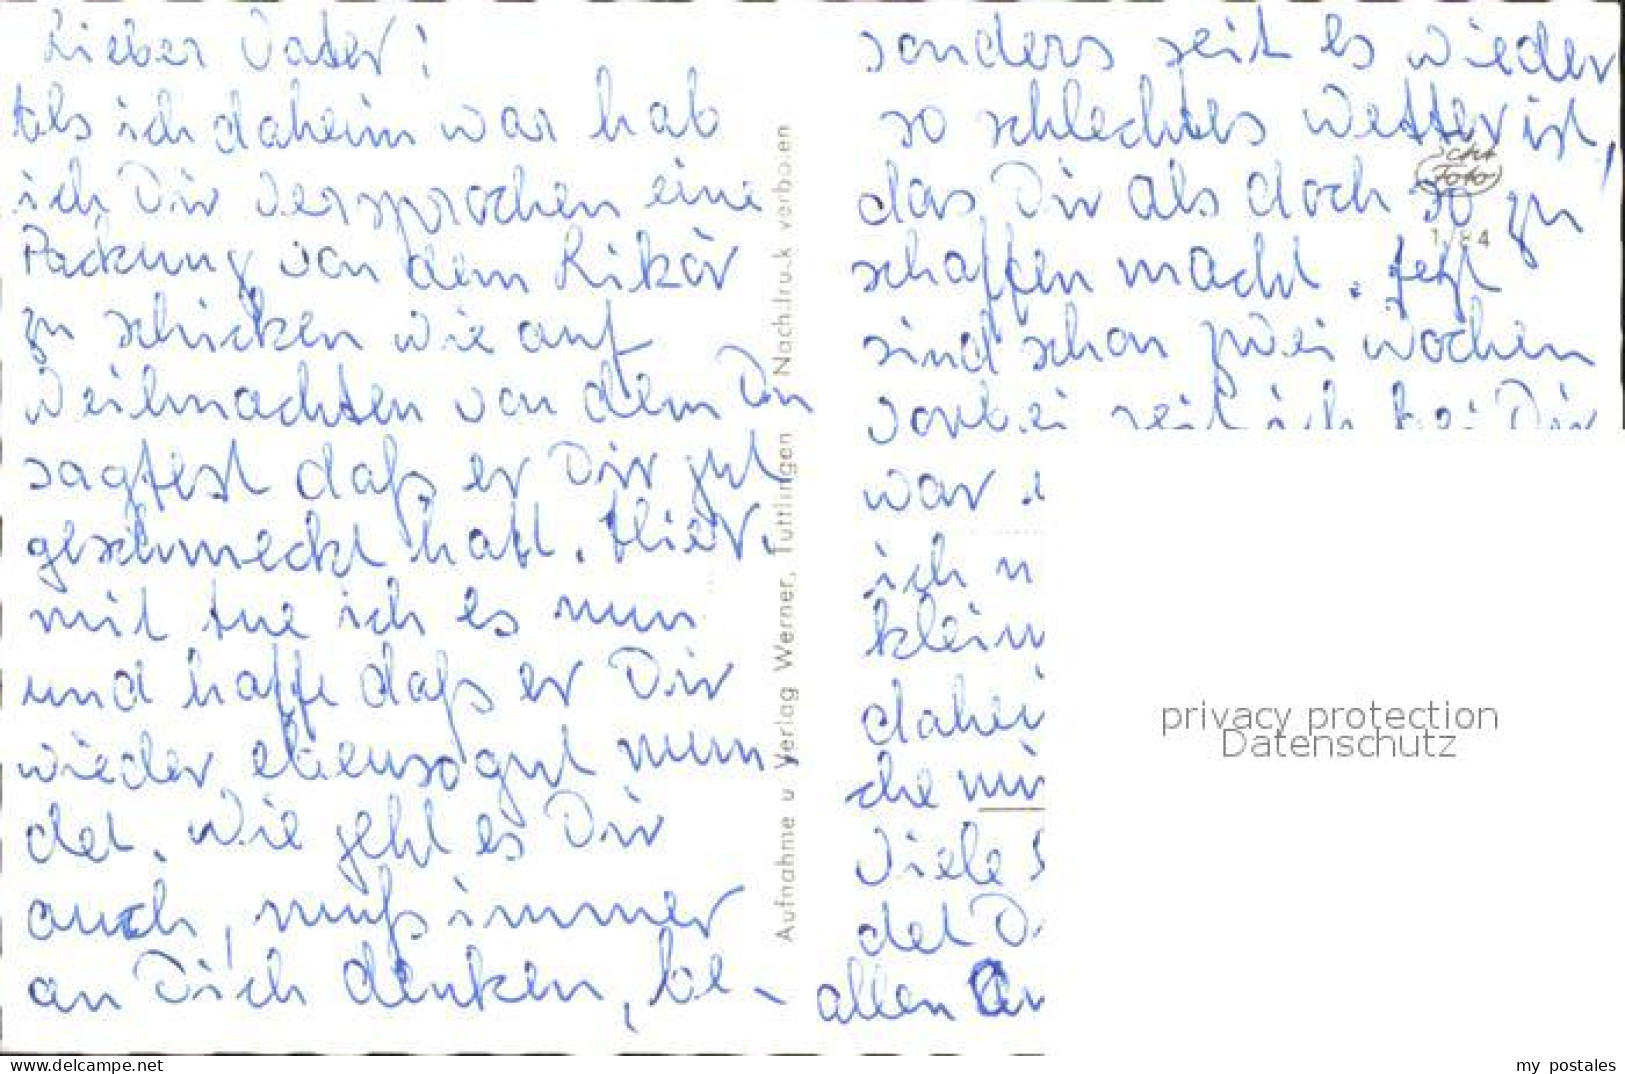 Lieber Vater!
Als ich daheim war hab
ich Dir versprochen eine
Packung von dem Likör
zu schicken wie auf
Weihnachten von dem Du
sagtest daß er Dir gut
geschmeckt hatt. Hier.
mit tue ich es nun
und hoffe daß er Dir
wieder ebensogut mun
det. Wie geht es Dir
auch, muß immer
an Dich denken, be-
sonders seit es wieder
so schlechtes Wetter ist,
das Dir als doch so zu
schaffen macht. Jetzt
sind schon zwei Wochen
vorbei seit ich bei Dir
war
ich
klein
dahei
che mir
Viele
det
allen
Aufnahme u Verlag Werner, Tuttlingen Nachdruck verboten
Echt
Foto
1/84
privacy protection
Datenschutz
www.delcampe.net/oldthing
my_postales